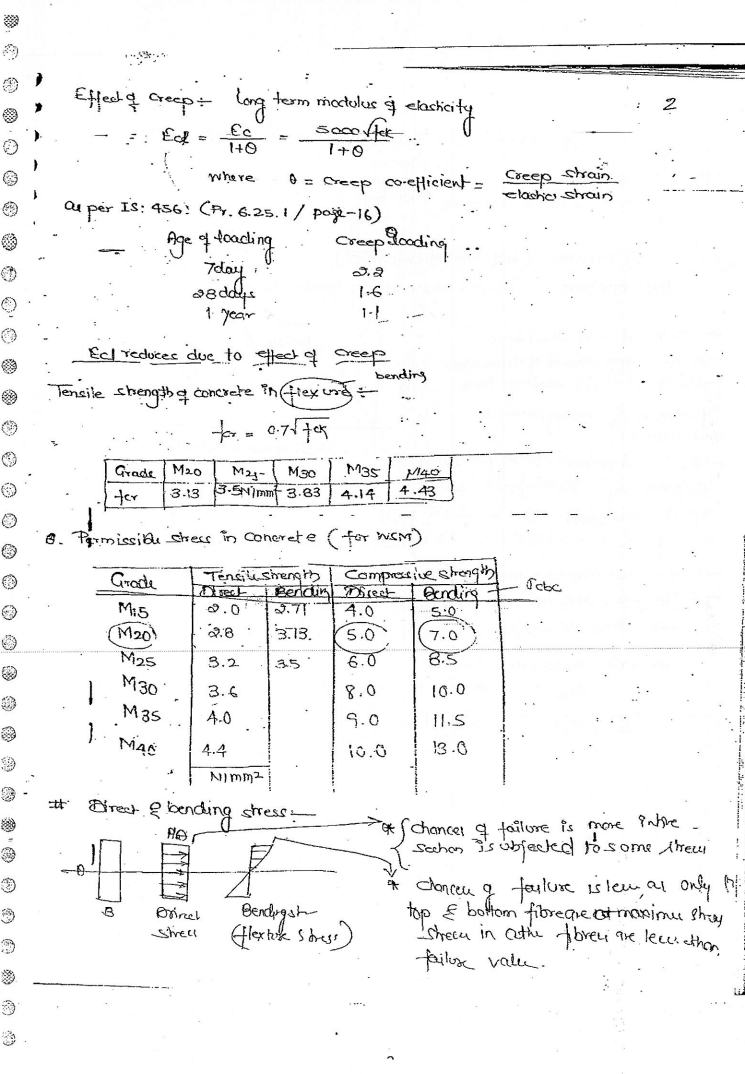 2
Effect of creep:- long term modulus of elasticity
∴ Ecl = Ec / 1+θ = 5000√fck / 1+θ
where θ = creep co-efficient = Creep strain / elastic strain
as per IS: 456: (Pr. 6.25.1 / page-16)
Age of loading Creep loading
7day 2.2
28 days 1.6
1 year 1.1
Ecl reduces due to effect of creep
bending
Tensile strength of concrete in flexure :-
fcr = 0.7√fck
Grade M20 M25 M30 M35 M40
fcr 3.13 3.5N/mm² 3.83 4.14 4.43
Permissible stress in concrete (for WSM)
Grade Tensile strength Compressive strength
Direct Bending Direct Bending σcbc
M15 2.0 2.71 4.0 5.0
M20 2.8 3.13 5.0 7.0
M25 3.2 3.5 6.0 8.5
M30 3.6 8.0 10.0
M35 4.0 9.0 11.5
M40 4.4 10.0 13.0
N/mm²
# Direct & bending stress:-
* Chances of failure is more
section is subjected to same stress
* Chances of failure is less, as only
top & bottom fibre are at maximum stress
stress in other fibres are less than
failure value.
B Direct stress
Bending
(flexure stress)